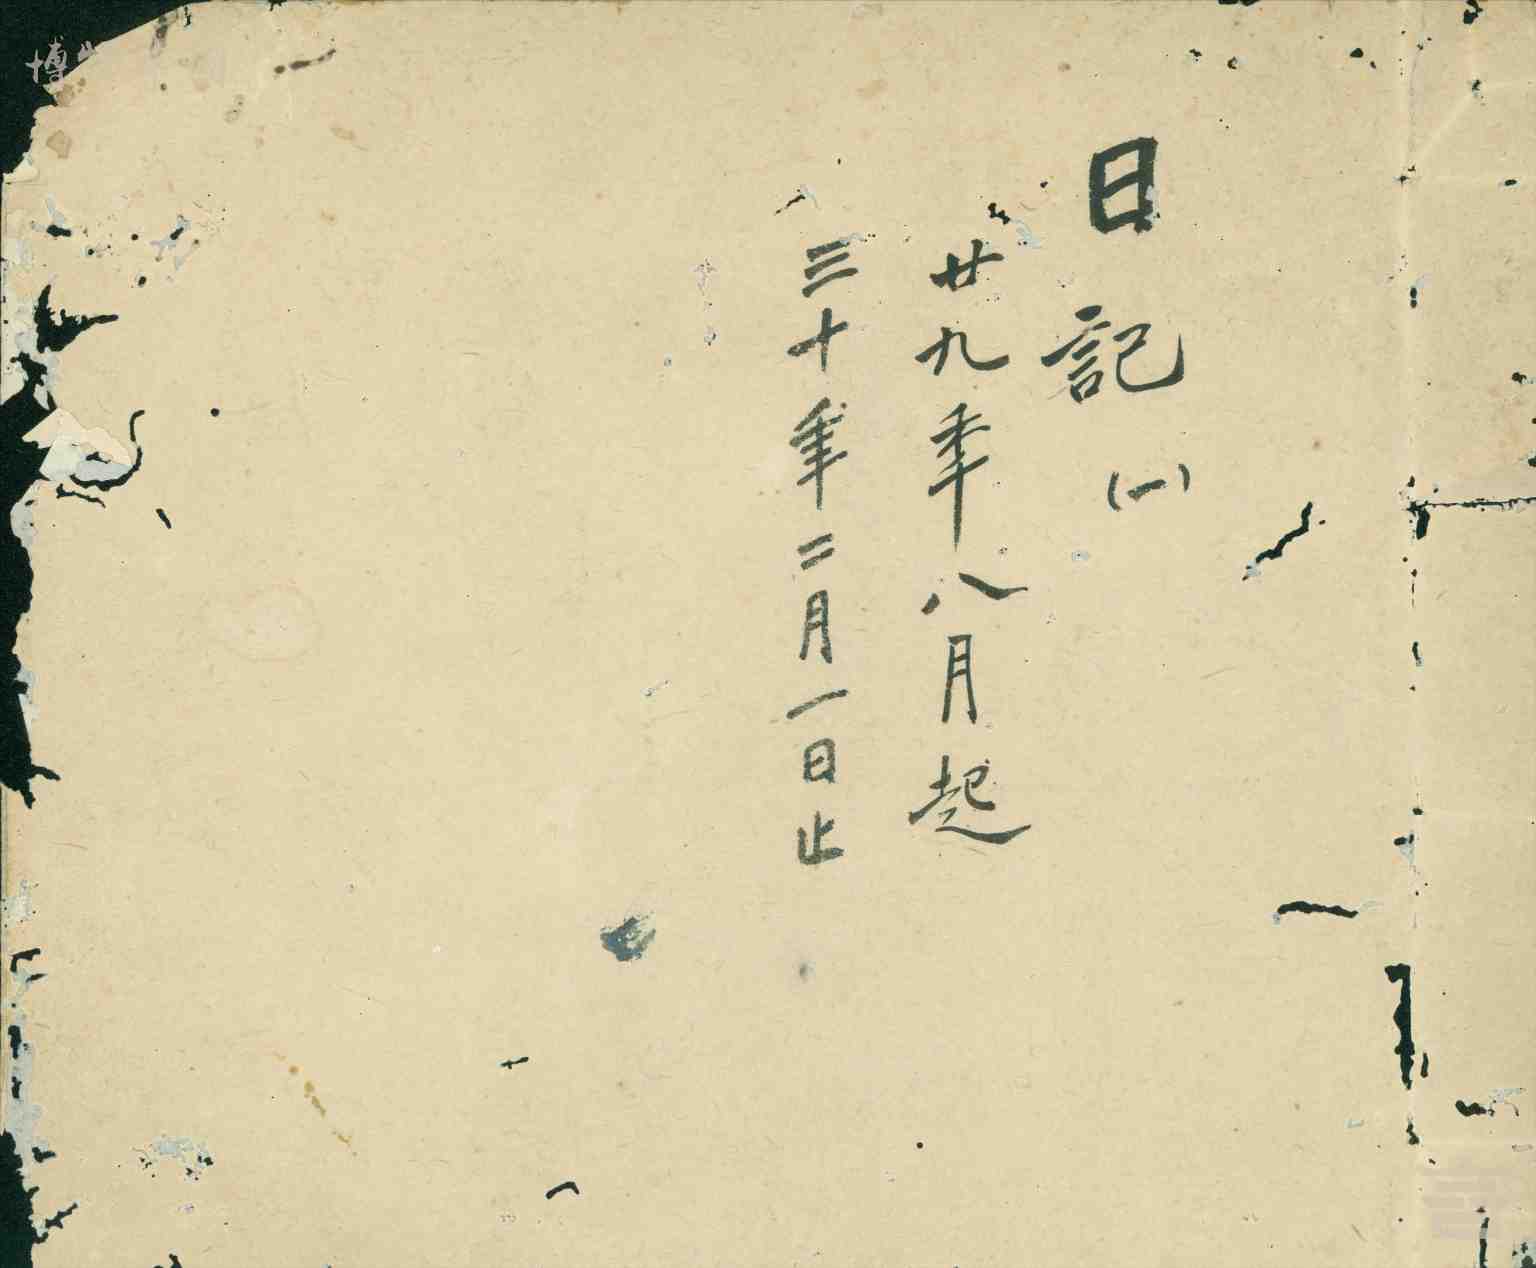 日記(一)
廿九年八月起
三十年二月一日止
博